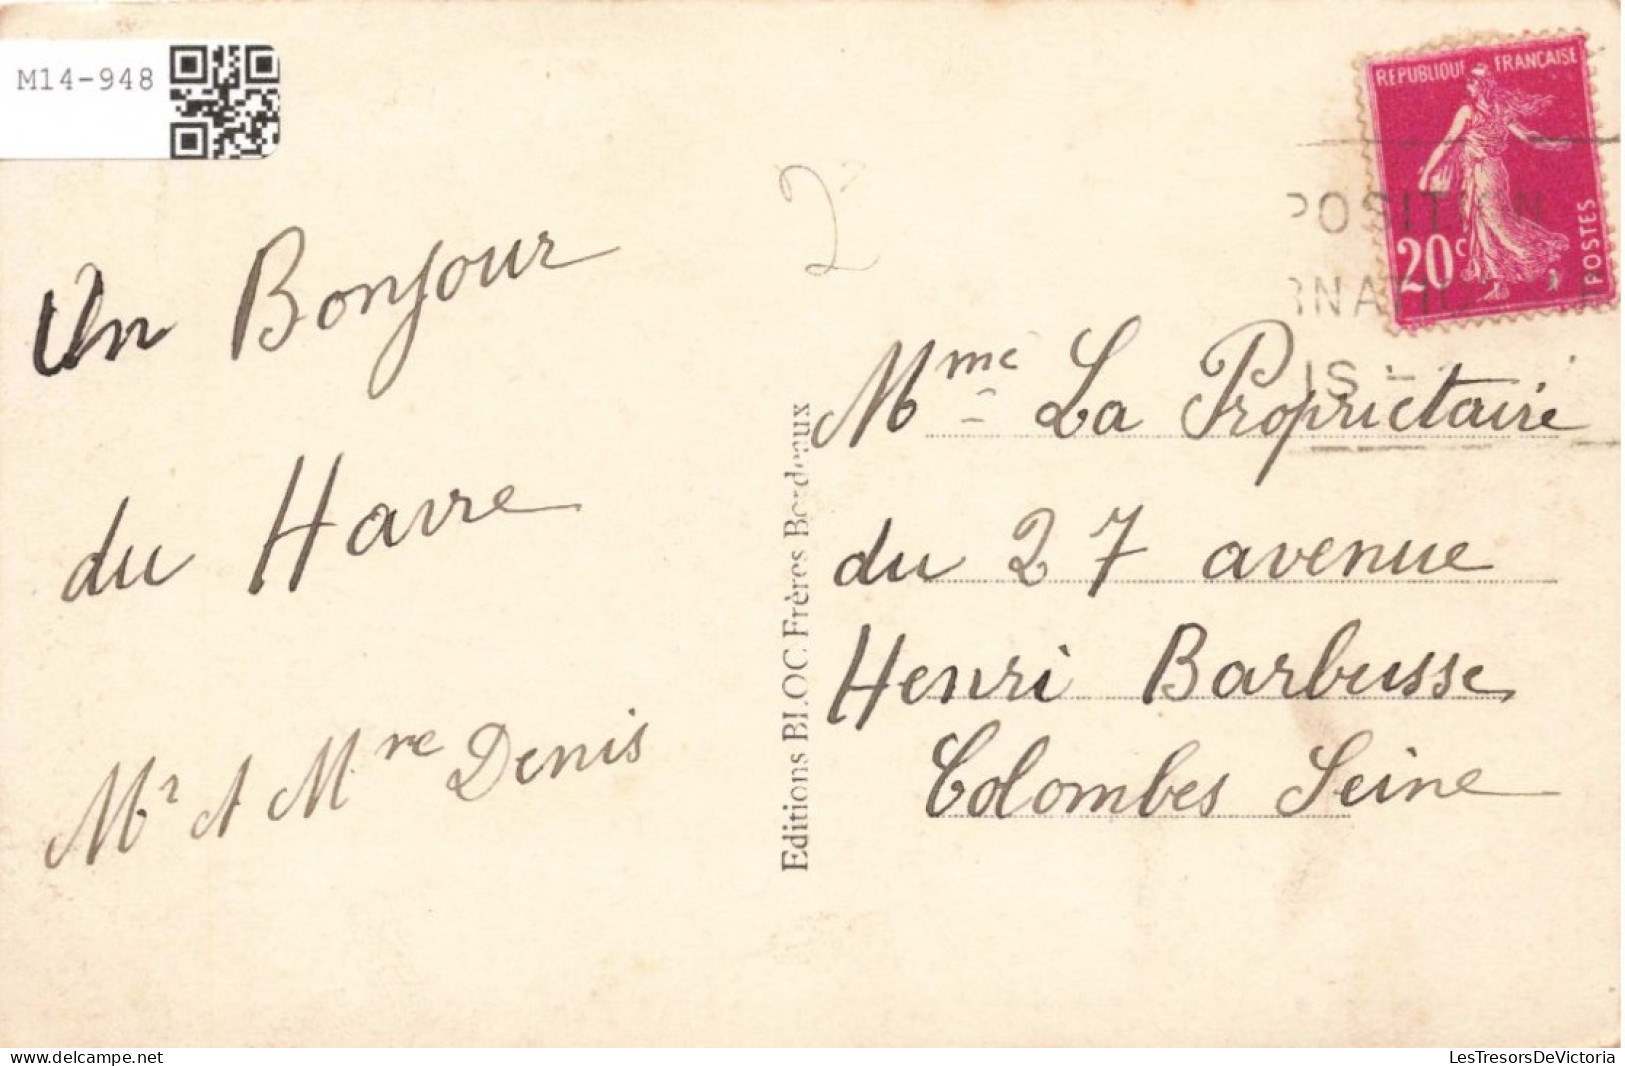 M14-948
REPUBLIQUE FRANCAISE
20c
POSTES
POSITION
RNATIO
IS -
2
Un Bonjour
du Havre
Mr et Mme Denis
Editions BLOC Frères Bordeaux
Mme La Proprietaire
du 27 avenue
Henri Barbusse
Colombes Seine
delcampe.net
LesTresorsDeVictoria